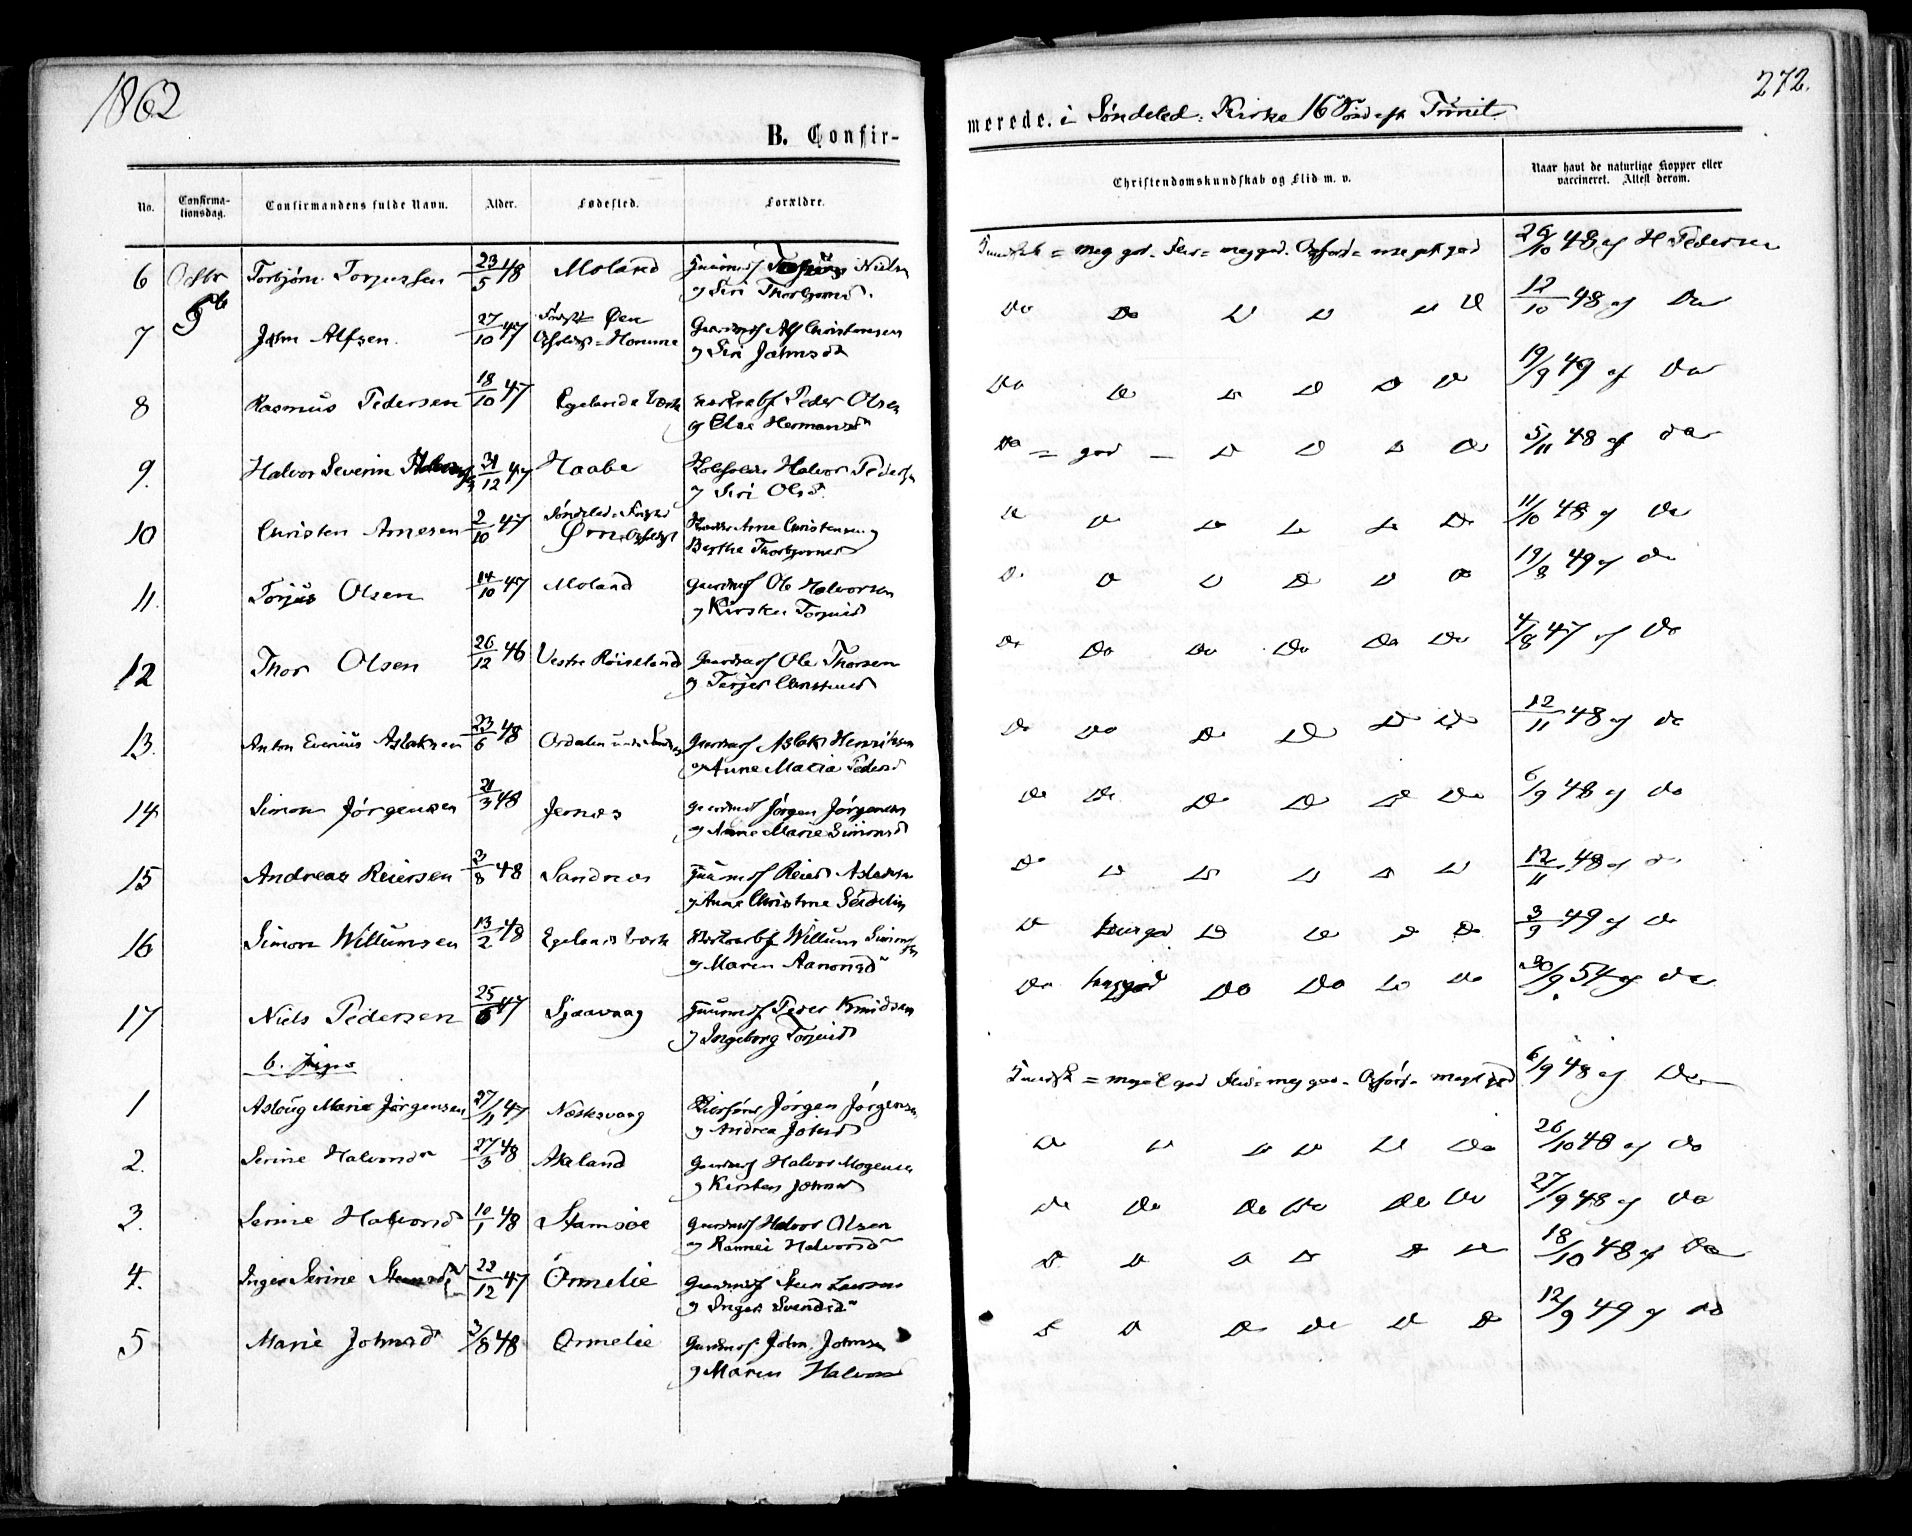 1862
272.
B. Confir-
merede. i Søndeled Kirke 16 Sønd eft Trinit
No.
Confirma-
tionsdag.
Confirmandens fulde Navn.
Alder.
Fødested.
Forældre.
Christendomskundskab og Flid m. v.
Naar havt de naturlige Kopper eller
vaccineret. Attest derom.
6 Octbr Torbjørn Torjussen 23/5 48 Moland Nielsen
og Siri
Kundsk = meg god Flid = meg god = god 26/10 48 af H Pedersen
5te
7 John Alfsen 27/10 47 Øen Gaardmd Alf Christensen
Homme og Siri Johnsd
Do Do Do Do Do Do 12/10 48 af Do
8 Rasmus Pedersen 18/10 47 Egelands Værk Peder Olsen
og Else Hermansd
Do Do Do Do Do Do 19/9 49 af Do
9. Halvor Severin 31/12 47 Haabe Halvor Pedersen
og Siri Olsd.
Do = god — Do Do Do Do 5/11 48 af do
10 Christen Arnesen 2/10 47 Søndeled Arne Christensen og
Berthe Thorbjørnsd
Do Do Do Do Do Do 11/10 48 af Do
11. Torjus Olsen 14/10 47 Moland Gaardmd Ole Halvorsen
og Kirsten Torjusd
Do Do Do Do Do Do 19/8 49 af Do
12 Thor Olsen 26/12 46 Vestre Røiseland Gaardmd Ole Thorsen
og
Do Do Do Do Do Do 4/8 47 af Do
13. Anton Evenius Aslaksen 23/6 48 Ordalen under Gaardmd Aslak Henriksen
og Anne Maria Pedersd
Do Do Do Do Do Do 12/11 48 af Do
14 Simon Jørgensen 21/3 48 Jernes Gaardmd Jørgen Jørgensen
og Anne Marie Simonsd
Do Do Do Do Do Do 6/9 48 af Do
15 Andreas Reiersen 3/8 48 Sandnes Reier
og Anne Christine
Do Do Do Do Do Do 12/11 48 af Do
16 Simon Willumsen 13/2 48 Egelands Værk Willum Simonsen
og Maren Aanonsd
Do god Do Do Do Do 3/9 49 af Do
17 Niels Pedersen 25/6 47 Sjaavaag Peder Knudsen
og Ingeborg Torjusd
Do Do Do Do Do 30/9 54 af Do
b. Piger
1 Aslaug Marie Jørgensen 27/11 47 Næskvaag Jørgen Jørgensen
og Andrea
Kundsk = meget god Flid = meg god = meget god 6/9 48 af Do
2. Serine Halvorsd 27/3 48 Akland Gaardmd Halvor Mogensen
og Kirsten Johnsd
Do Do Do Do Do Do 26/10 48 af Do
3. Serine Halvorsd 10/1 48 Stamsøe Gaardmd Halvor Olsen
og Ramnei Halvorsd
Do Do Do Do Do Do 27/9 48 af Do
4. Inger Serine 22/12 47 Ormelie Gaardmd Larsen
og Inger Svendsd
Do Do Do Do Do Do 18/10 48 af Do
5 Marie Johnsd 3/8 48 Ormelie Gaardmd John Johnsen
og Maren Halvorsd
Do Do Do Do Do Do 12/9 49 af Do